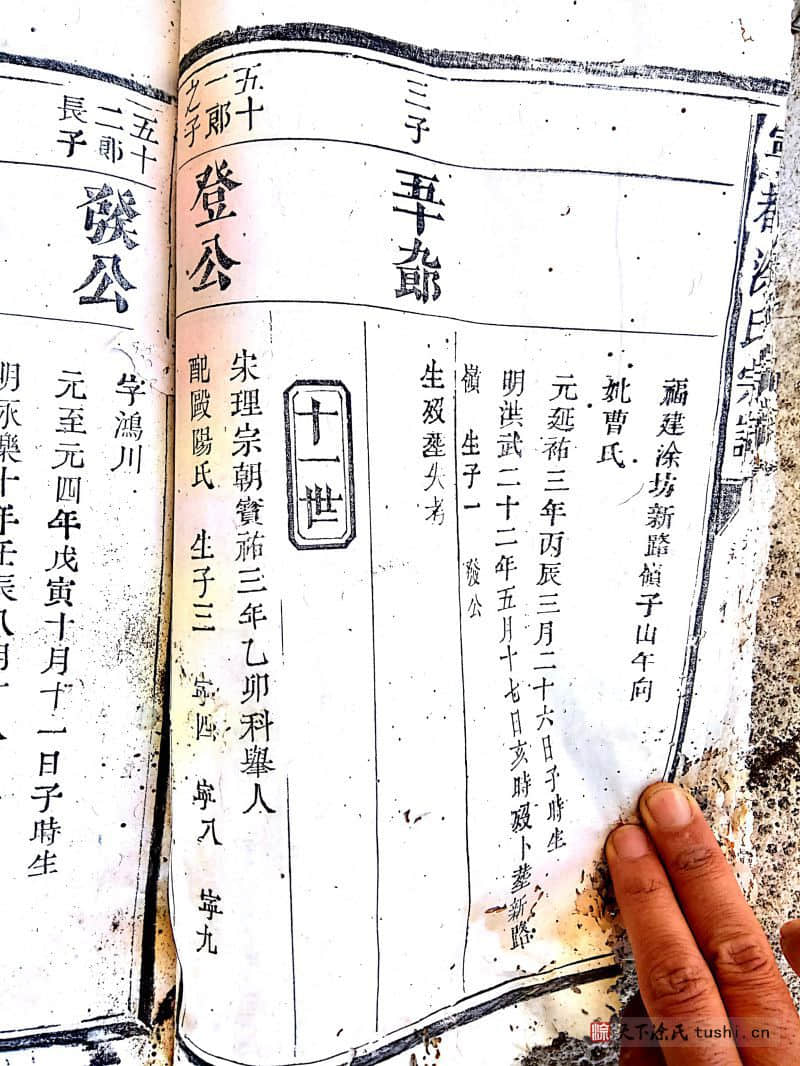 都涂氏宗譜
福建涂坊新路嶺子山午向
妣曹氏
元延祐三年丙辰三月二十六日子時生
明洪武二十二年五月十七日亥時殁卜塟新路
嶺 生子一 發公
三子
五十九郎
生殁塟失考
十一世
五十
一郎
之子
登公
宋理宗朝寶祐三年乙卯科舉人
配歐陽氏 生子三 寍四 寍八 寍九
五十
二郎
長子
發公
字鴻川
元至元四年戊寅十月十一日子時生
明永樂十年壬辰八月十八
天下涂氏 tushi.cn